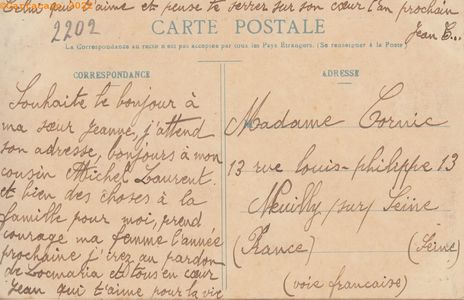 qui t'aime et pense te serrer sur son cœur l'an prochain
Jean
2202
CARTE POSTALE
La Correspondance au recto n'est pas acceptée par tous les Pays Étrangers. (Se renseigner à la Poste)
CORRESPONDANCE
Souhaite le bonjour à
ma sœur Jeanne, j'attend
son adresse, bonjours à mon
cousin Michel Laurent.
et bien des choses à la
famille pour moi, prend
courage ma femme l'année
prochaine j'irez au pardon
de Locmaria et tous en cœur
Jean qui t'aime pour la vie
ADRESSE
Madame Cornic
13 rue louis-philippe 13
Neuilly /sur/ Seine
(France) (Seine)
(voie française)